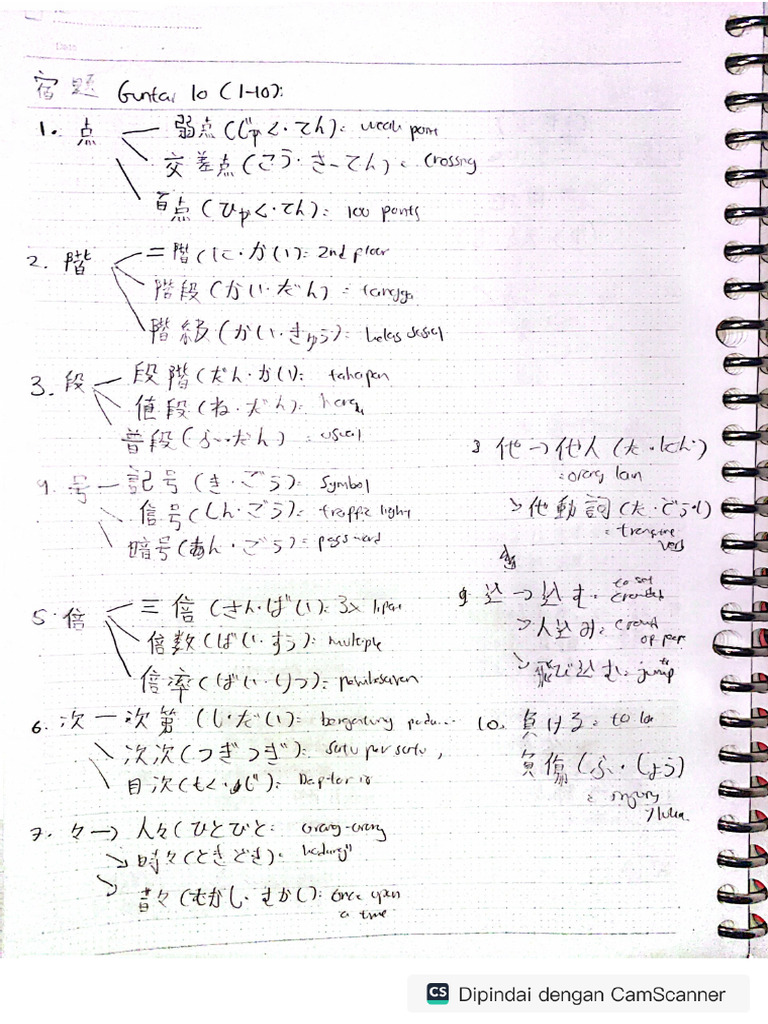 Date
宿題 Guntai 10 (1-10):
1. 点 — 弱点 (じゃく・てん): weak point
交差点 (こう・さ-てん): Crossing
百点 (ひゃく・てん): 100 points
2. 階 — 二階 (に・かい): 2nd floor
階段 (かい・だん): tangga
階級 (かい・きゅう): kelas sosial
3. 段 — 段階 (だん・かい): tahapan
値段 (ね・だん): harga
普段 (ふ・だん): usual
4. 号 — 記号 (き・ごう): Symbol
信号 (しん・ごう): traffic light
暗号 (あん・ごう): password
5. 倍 — 三倍 (さん・ばい): 3x lipat
倍数 (ばい・すう): multiple
倍率 (ばい・りつ):
6. 次 — 次第 (し・だい): bergantung pada...
次次 (つぎつぎ): satu per satu,
目次 (もく・じ): Daftar is
7. 々 → 人々 (ひとびと: orang-orang
時々 (ときどき): kadang"
昔々 (むかし・むかし): Once upon
a time
8 他 → 他人 (た・にん)
: orang lain
他動詞 (た・どうし)
: transitive
verb
9 込 → 込む: to get
crowded
人込み: crowd
of peo
飛び込む: to jump
10. 負ける: to lo
負傷 (ふ・しょう)
: injury
/luka.
CS Dipindai dengan CamScanner